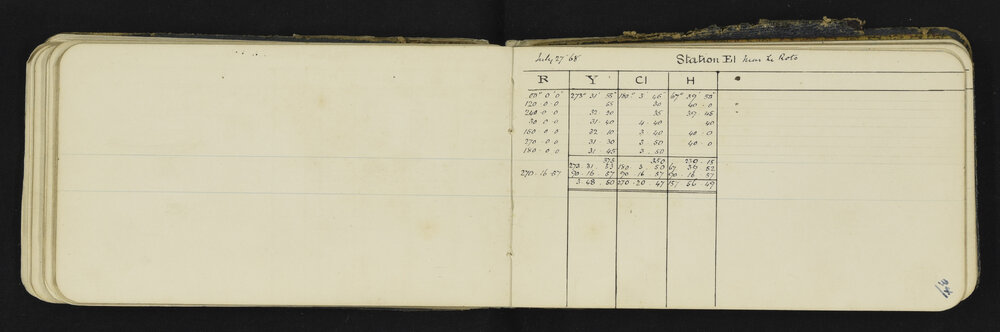 July 27 '68 Station E1 near Te Roto
R Y C1 H
00° 0' 0" 273° 31' 55" 180° 3' 45" 67° 39' 55"
120 · 0 · 0 55 30 40 - 0
240 · 0 · 0 32 20 35 39 · 45
30 · 0 · 0 31 · 40 4 · 40 40
150 · 0 · 0 32 10 3 · 40 40 - 0
270 - 0 0 31 30 3 . 50 40 · 0
180 - 0 · 0 31 45 3 . 50
375 350 230 · 15
273 · 31 53 180 3 50 67 39 52
270 · 16 · 57 90 · 16 57 90 16 57 90 16 57
3 · 48 . 50 270 · 20 47 157 56 · 49